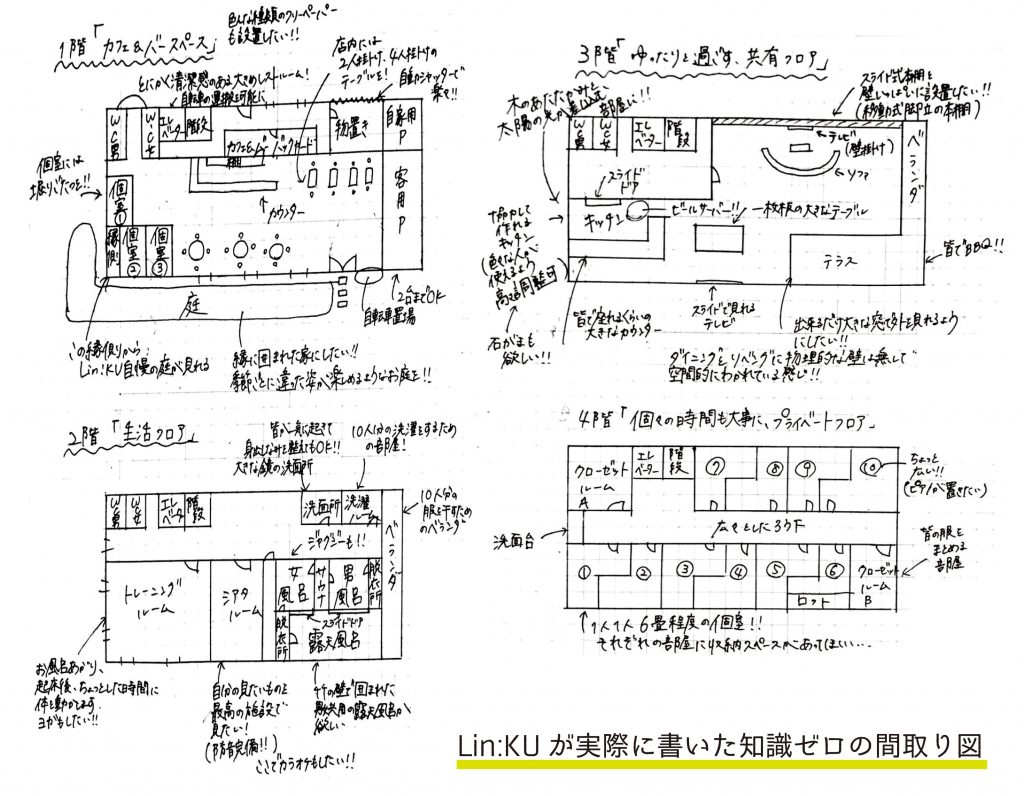 1階「カフェ&バースペース」
色んな種類のフリーペーパー
も設置したい!!
とにかく清潔感のある大きめレストルーム!
自転車の運搬を可能に
店内には
2人掛け、4人掛けの
テーブルを!
自動シャッターで
楽々!!
W.C男
W.C女
エレベーター
階段
物置き
自家用P
カフェ&バー バックヤード
棚
客用P
個室には
堀りごたつを!!
個室①
カウンター
縁側
個室②
個室③
庭
2台までOK
自転車置場
この縁側から
Lin:KU自慢の庭が見れる
緑に囲まれた家にしたい!!
季節ごとに違った姿が楽しめるようなお庭を!!
2階「生活フロア」
皆が一斉に起きて
身出しなみを整えてもOK!!
大きな鏡の洗面所
10人分の洗濯をするため
の部屋!
W.C男
W.C女
エレベーター
階段
洗面所
洗濯ルーム
ベランダ
10人分の
服を干すため
のベランダ
ジャグジーも!!
トレーニング
ルーム
シアタ
ルーム
女風呂
サウナ
男風呂
脱衣所
脱衣所
スライドドア
露天風呂
お風呂あがり、
起床後、ちょっとした時間に
体を動かせます
ヨガもしたい!!
自分の見たいものを
最高の施設で
見たい!
(防音完備!!)
ここでカラオケもしたい!!
竹の壁で囲まれた
露天風呂が
欲しい
3階「ゆったりと過ごす、共有フロア」
木のあたたかみと
太陽の光が差し込む
部屋に!!
スライド式本棚を
壁いっぱいに設置したい!!
(移動式脚立の本棚)
W.C男
W.C女
エレベーター
階段
テレビ
(壁掛け)
ソファ
ベランダ
スライド
ドア
キッチン
ビールサーバー!!
一枚板の大きなテーブル
テラス
皆でBBQ!!
作れる
キッチン
(色々な人が
使えるよう
高さ調整可)
石がまも
欲しい!!
皆で座れるくらいの
大きなカウンター
スライドで見れる
テレビ
出来るだけ大きな窓で外を見れるよう
にしたい!!
ダイニングとリビングに物理的な壁は無しで
空間的にわかれている感じ!!
4階「個々の時間も大事に、プライベートフロア」
クローゼット
ルーム
A
エレベーター
階段
⑦
⑧
⑨
⑩
ちょっと
広い!!
(ピアノが置きたい)
洗面台
広々としたろう下
皆の服を
まとめる
部屋
①
②
③
④
⑤
⑥
クローゼット
ルーム
B
ロフト
1人1人6畳程度の個室!!
それぞれの部屋に収納スペースがあってほしい…
Lin:KU が実際に書いた知識ゼロの間取り図